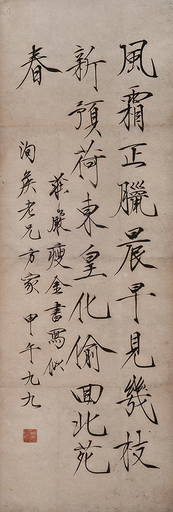 風霜正臘晨早見幾枝
新預荷東皇化偷回北苑
春
莊嚴瘦金書寫似
洵侯老兄方家 甲午九九